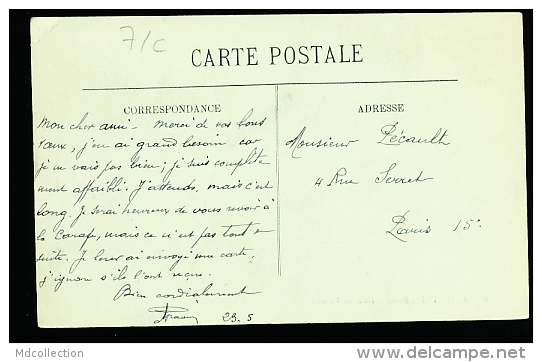 71c
CARTE POSTALE
CORRESPONDANCE
ADRESSE
Mon cher ami - Merci de vos bons
vœux, j'en ai grand besoin car
je ne vais pas bien; je suis complète
ment affaibli. J'attends, mais c'est
long. Je serai heureux de vous revoir à
la mais ce n'est pas tout de
suite. Je leur ai envoyé une carte,
j'ignore s'ils l'ont reçue.
Bien cordialement
23.5
Monsieur Pécault
4 Rue Serret
Paris 15e
Mdcollection
http://www.delcampe.net